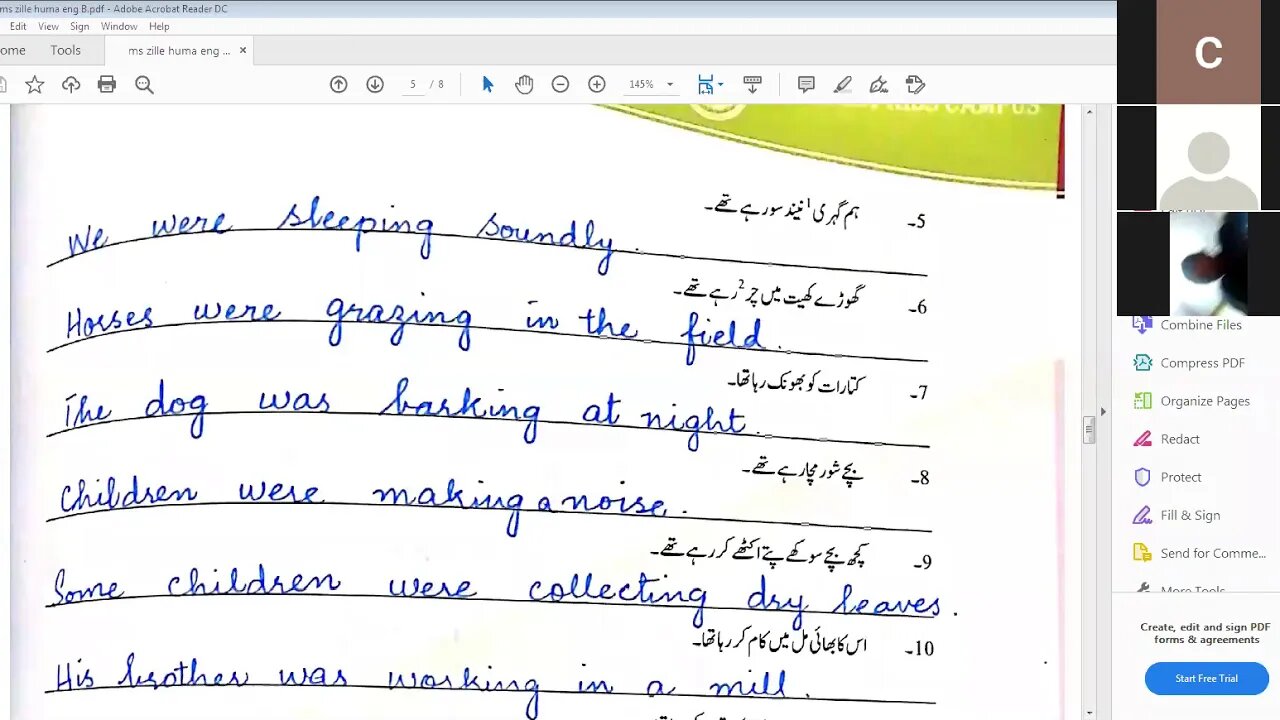 ms zille huma eng B.pdf - Adobe Acrobat Reader DC
Edit View Sign Window Help
ome Tools ms zille huma eng ... ×
5 / 8 145%
C
CAMPUS
5۔ ہم گہری¹ نیند سو رہے تھے۔
We were sleeping soundly.
6۔ گھوڑے کھیت میں چر² رہے تھے۔
Horses were grazing in the field.
7۔ کتا رات کو بھونک رہا تھا۔
The dog was barking at night.
8۔ بچے شور مچا رہے تھے۔
Children were making a noise.
9۔ کچھ بچے سوکھے پتے اکٹھے کر رہے تھے۔
Some children were collecting dry leaves.
10۔ اس کا بھائی مل میں کام کر رہا تھا۔
His brother was working in a mill.
Combine Files
Compress PDF
Organize Pages
Redact
Protect
Fill & Sign
Send for Comme...
More Tools
Create, edit and sign PDF
forms & agreements
Start Free Trial